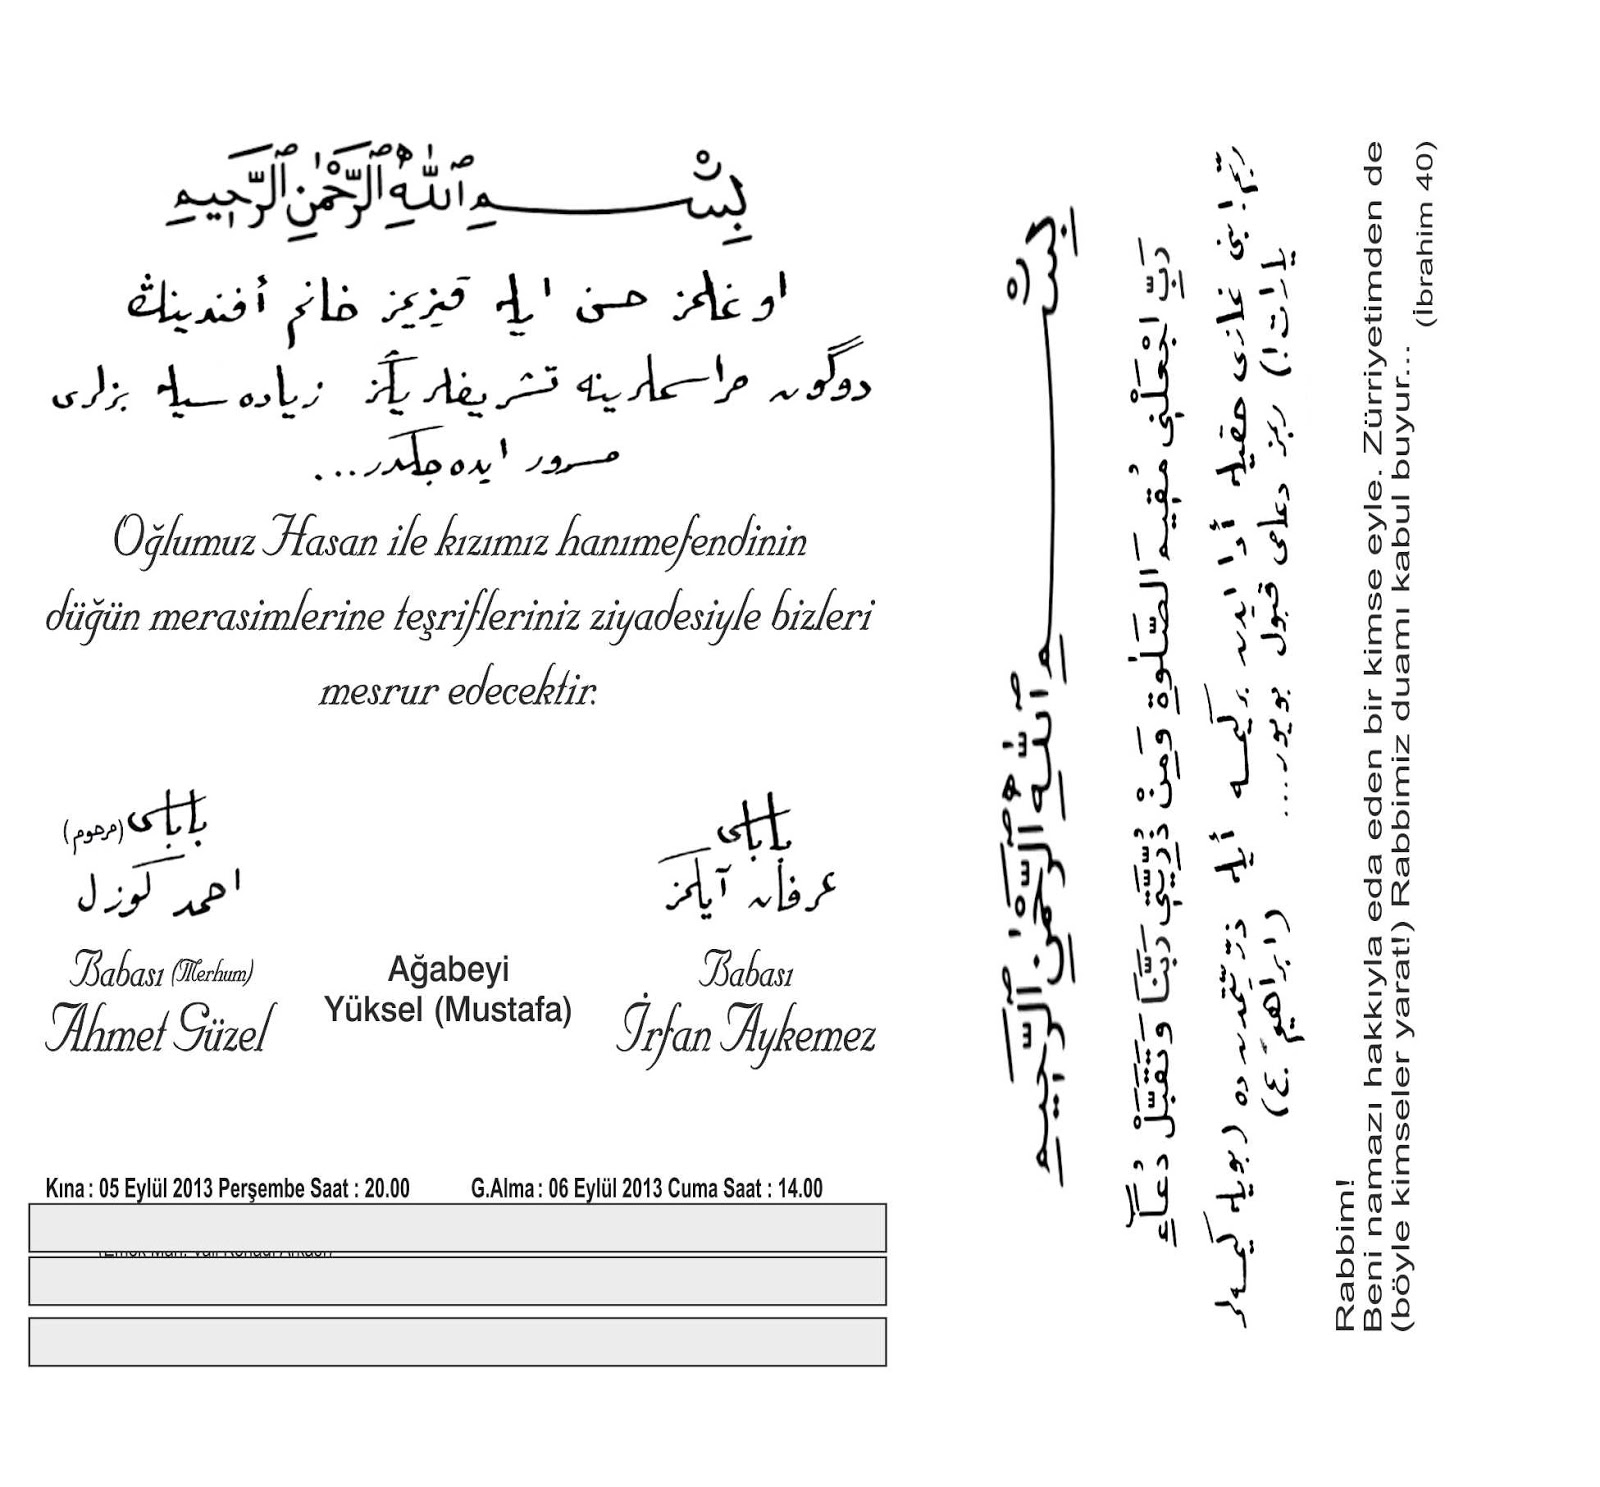 بِسْمِ ٱللّٰهِ ٱلرَّحْمٰنِ ٱلرَّحِيمِ
اوغلمز حسن ايله قيزيمز خانم أفندينڭ
دوگون مراسملرينه تشريفلريڭز زياده سيله بزلرى
مسرور ايده جكدر...
Oğlumuz Hasan ile kızımız hanımefendinin
düğün merasimlerine teşrifleriniz ziyadesiyle bizleri
mesrur edecektir.
باباسى (مرحوم)
احمد كوزل
Babası (Merhum)
Ahmet Güzel
Ağabeyi
Yüksel (Mustafa)
باباسى
عرفان آيكمز
Babası
İrfan Aykemez
Kına : 05 Eylül 2013 Perşembe Saat : 20.00
G.Alma : 06 Eylül 2013 Cuma Saat : 14.00
بِسْمِ ٱللّٰهِ ٱلرَّحْمٰنِ ٱلرَّحِيمِ
رَبِّ اجْعَلْنِي مُقِيمَ الصَّلٰوةِ وَمِنْ ذُرِّيَّتِي رَبَّنَا وَتَقَبَّلْ دُعَاءِ
ربّم! بنى نمازى حقيله أدا ايدن بر كيمسه أيله ذرّيّتمدن ده (بويله كيمسه لر
يارات!) ربمز دعامى قبول بويور.... (ابراهيم ٤٠)
Rabbim!
Beni namazı hakkıyla eda eden bir kimse eyle. Zürriyetimden de
(böyle kimseler yarat!) Rabbimiz duamı kabul buyur...
(İbrahim 40)